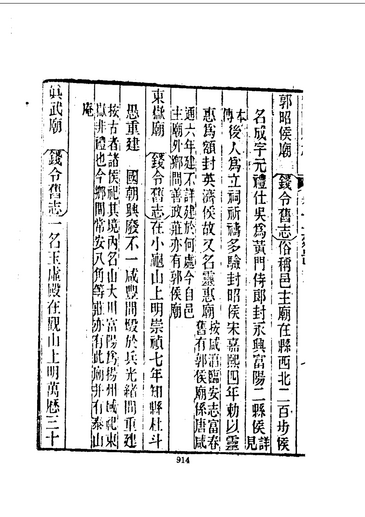 郭昭侯廟 錢令舊志俗稱邑主廟在縣西北二百步侯
名成字元禮仕吳爲黃門侍郎封永興富陽二縣侯詳見
本傳後人爲立祠祈禱多驗封昭侯宋嘉熙四年勅以靈
惠爲額封英濟侯故又名靈惠廟按咸淳臨安志富春舊有郭侯廟係唐咸
通六年建不詳建於何處今自邑主廟外鄉間善政莊亦有郭侯廟
東嶽廟 錢令舊志在小龜山上明崇禎七年知縣杜斗
愚重建 國朝興廢不一咸豐間燬於兵光緒間重建
按古者諸侯祀其境內名山大川富陽爲揚州域祀東嶽非禮也今鄉間常安八角等莊亦有此廟并有泰山
庵
眞武廟 錢令舊志一名玉虛殿在觀山上明萬曆三十
914